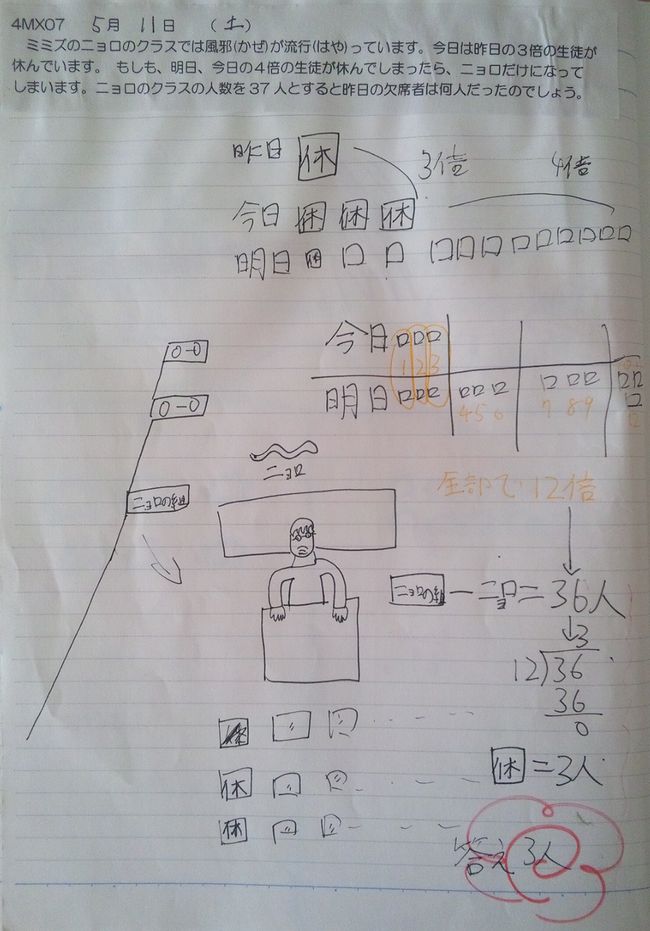 4MX07 5月 11日 (土)
ミミズのニョロのクラスでは風邪(かぜ)が流行(はや)っています。今日は昨日の3倍の生徒が
休んでいます。 もしも、明日、今日の4倍の生徒が休んでしまったら、ニョロだけになって
しまいます。ニョロのクラスの人数を37人とすると昨日の欠席者は何人だったのでしょう。
昨日 休 3倍 4倍
今日 休 休 休
明日 休
今日
1 2 3
明日
4 5 6 7 8 9
12
0-0
0-0
ニョロの組
ニョロ
全部で12倍
ニョロの組 - ニョロ = 36人
3
12)36
36
0
休
休
休
休 = 3人
答え 3人